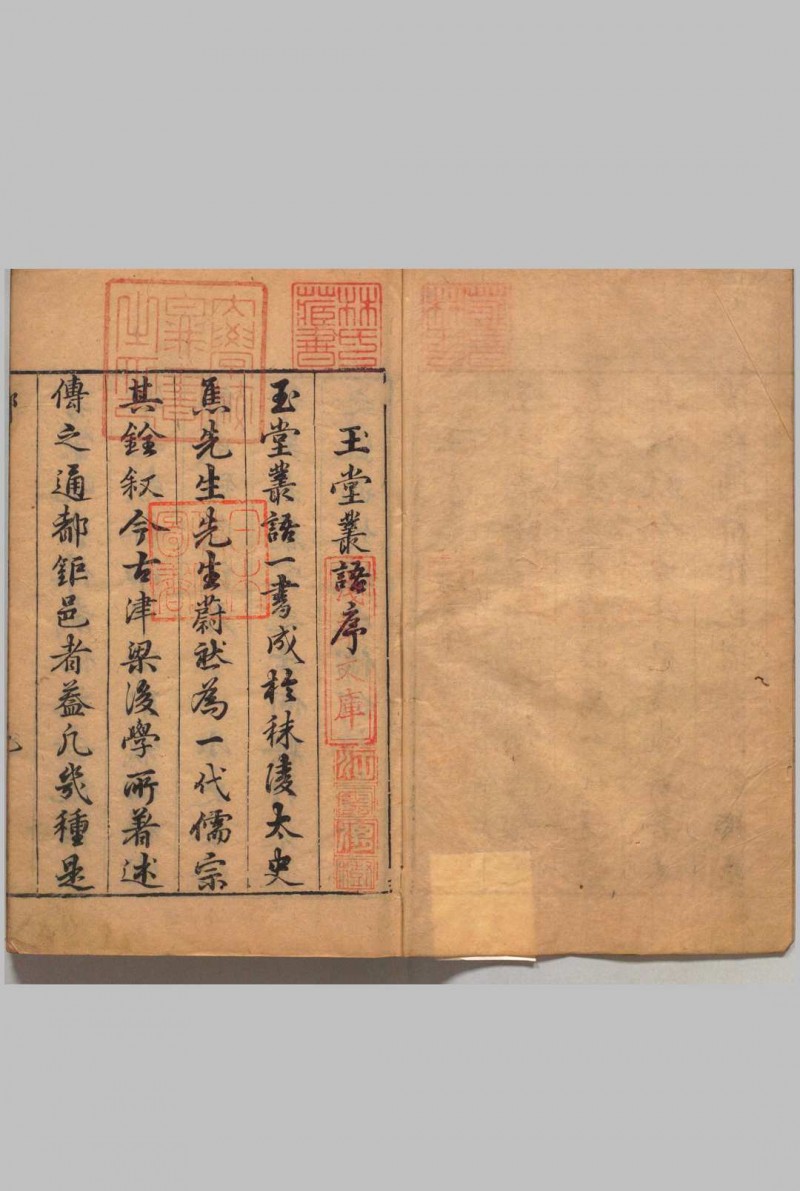 玉堂叢語序
玉堂叢語一書成於秣陵太史
焦先生先生蔚然為一代儒宗
其銓叙今古津梁後學所著述
傳之通都鉅邑者益凡幾種是
林氏藏書
日本
文庫